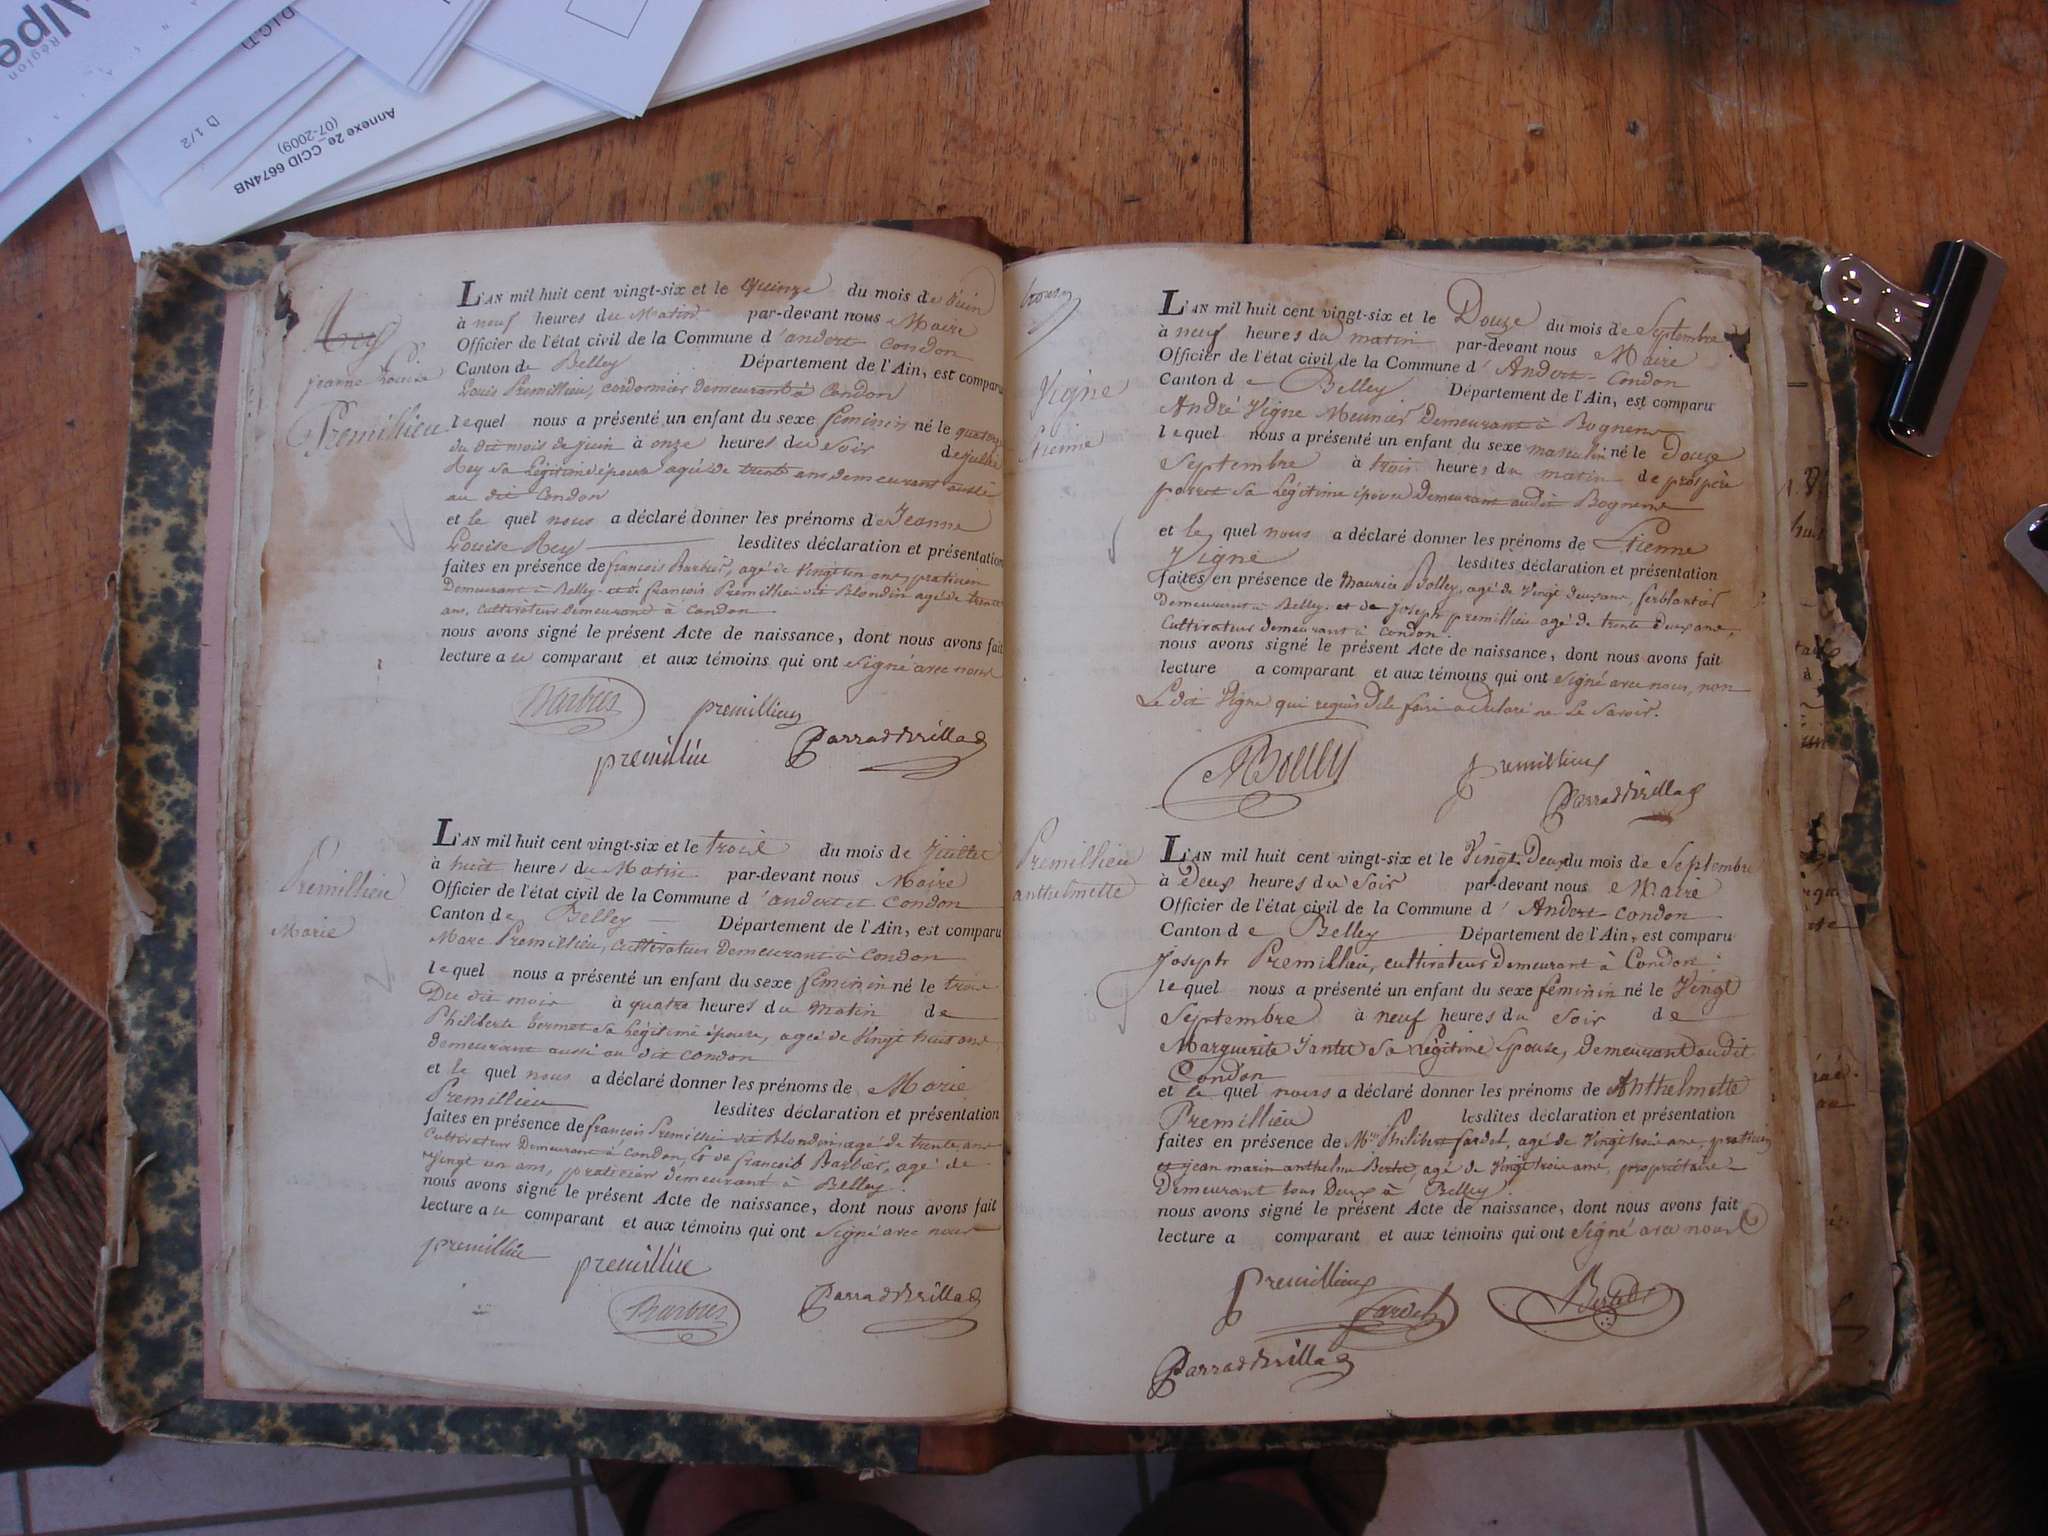 Alpe
Région
DICTI
D 1/2
Annexe 2e_CCID 6674NB
(07-2009)
Rey
jeanne Louise
Premillieu
L'AN mil huit cent vingt-six et le quinze du mois de Juin
à neuf heures du Matin par-devant nous Maire
Officier de l'état civil de la Commune d'andert Condon
Canton de Belley Département de l'Ain, est comparu
Louis Premillieu, cordonnier demeurant à Condon
lequel nous a présenté un enfant du sexe feminin né le quatorze
du dit mois de juin à onze heures du soir de julie
Rey sa Légitime épouse agée de trente ans demeurant aussi
au dit Condon
et le quel nous a déclaré donner les prénoms de Jeanne
Louise Rey lesdites déclaration et présentation
faites en présence de françois Barbier, agé de vingt un ans, praticien
Demeurant à Belley et de françois Premillieu dit Blondin agé de trente
ans, cultivateur demeurant à Condon
nous avons signé le présent Acte de naissance, dont nous avons fait
lecture a u comparant et aux témoins qui ont signé avec nous
Barbier premillieu
premillieu Parraddrillaz
Premillieu
Marie
L'AN mil huit cent vingt-six et le trois du mois de Juillet
à huit heures du Matin par-devant nous Maire
Officier de l'état civil de la Commune d'andert et Condon
Canton de Belley Département de l'Ain, est comparu
Marc Premillieu, cultivateur Demeurant à Condon
lequel nous a présenté un enfant du sexe feminin né le trois
Du dit mois à quatre heures du Matin de
Philiberte sa Légitime épouse, agée de Vingt huit ans
demeurant aussi au dit Condon
et le quel nous a déclaré donner les prénoms de Marie
Premillieu lesdites déclaration et présentation
faites en présence de françois Premillieu dit Blondin agé de trente ans
Cultivateur Demeurant à Condon, & de françois Barbier, agé de
Vingt un ans, praticien demeurant à Belley.
nous avons signé le présent Acte de naissance, dont nous avons fait
lecture a u comparant et aux témoins qui ont signé avec nous
premillieu premillieu
Barbier Parraddrillaz
Vigne
Etienne
L'AN mil huit cent vingt-six et le Douze du mois de Septembre
à neuf heures du matin par-devant nous Maire
Officier de l'état civil de la Commune d'Andert-Condon
Canton de Belley Département de l'Ain, est comparu
André Vigne Meunier Demeurant à Bognens
lequel nous a présenté un enfant du sexe masculin né le Douze
Septembre à trois heures du matin de prospère
parret sa Légitime épouse Demeurant audit Bognens
et le quel nous a déclaré donner les prénoms de Etienne
Vigne lesdites déclaration et présentation
faites en présence de Maurice Bolley, agé de Vingt deux ans, ferblantier
Demeurant à Belley et de Joseph premillieu agé de trente deux ans,
Cultivateur demeurant à Condon.
nous avons signé le présent Acte de naissance, dont nous avons fait
lecture a comparant et aux témoins qui ont signé avec nous, non
Le dit Vigne qui requis de le faire a déclaré ne le savoir.
Bolley premillieux
Parraddrillaz
Premillieu
anthelmette
L'AN mil huit cent vingt-six et le Vingt Deux du mois de Septembre
à Deux heures du soir par-devant nous Maire
Officier de l'état civil de la Commune d'Andert-Condon
Canton de Belley Département de l'Ain, est comparu
Joseph Premillieu, cultivateur demeurant à Condon
lequel nous a présenté un enfant du sexe féminin né le Vingt
Septembre à neuf heures du soir de
Marguerite Jantet sa Légitime Epouse, demeurant audit
Condon
et le quel nous a déclaré donner les prénoms de Anthelmette
Premillieu lesdites déclaration et présentation
faites en présence de Mrs Philibert fardel, agé de Vingt trois ans, praticien
et jean marin anthelme Bertet, agé de Vingt trois ans, propriétaire
Demeurant tous Deux à Belley.
nous avons signé le présent Acte de naissance, dont nous avons fait
lecture a comparant et aux témoins qui ont signé avec nous
premillieux
fardel
Parraddrillaz